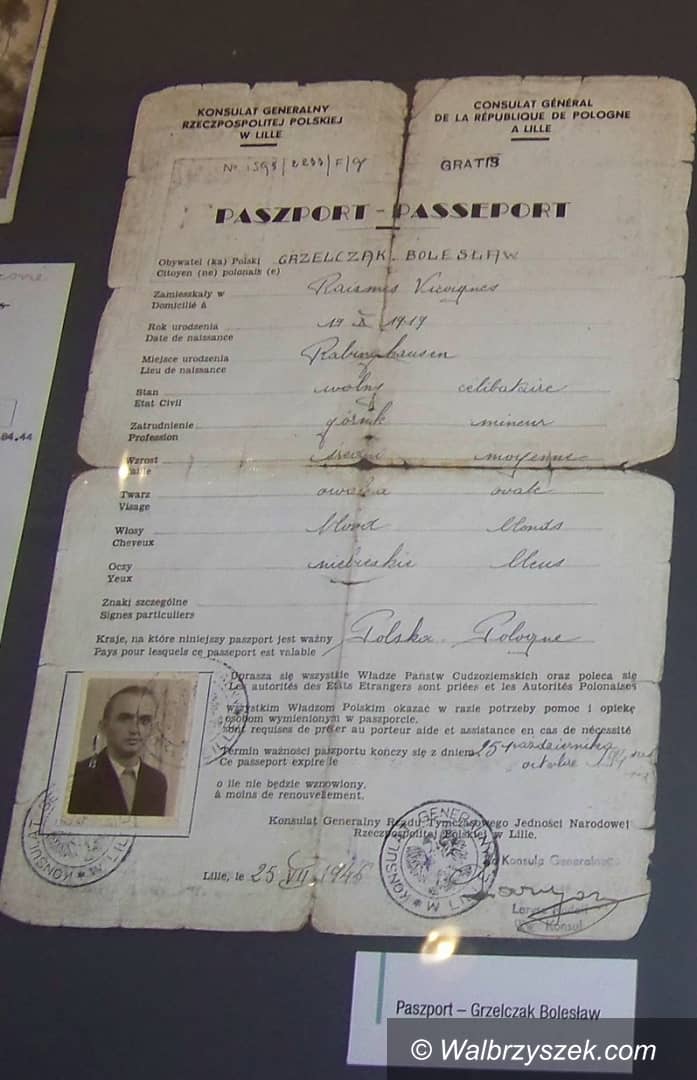 KONSULAT GENERALNY
RZECZYPOSPOLITEJ POLSKIEJ
W LILLE
CONSULAT GÉNÉRAL
DE LA RÉPUBLIQUE DE POLOGNE
A LILLE
No
GRATIS
PASZPORT - PASSEPORT
Obywatel (ka) Polski GRZELCZAK BOLESŁAW
Citoyen (ne) polonais (e)
Zamieszkały w Raismes Vicoignes
Domicilié à
Rok urodzenia 19 X 1919
Date de naissance
Miejsce urodzenia
Lieu de naissance
Stan wolny célibataire
Etat Civil
Zatrudnienie górnik mineur
Profession
Wzrost średni moyenne
Taille
Twarz owalna ovale
Visage
Włosy blond blonds
Cheveux
Oczy niebieskie bleus
Yeux
Znaki szczególne
Signes particuliers
Kraje, na które niniejszy paszport jest ważny Polska - Pologne
Pays pour lesquels ce passeport est valable
Uprasza się wszystkie Władze Państw Cudzoziemskich oraz poleca się
Les autorités des Etats Etrangers sont priées et les Autorités Polonaises
wszystkim Władzom Polskim okazać w razie potrzeby pomoc i opiekę
osobom wymienionym w paszporcie.
sont requises de prêter au porteur aide et assistance en cas de nécessité
Termin ważności paszportu kończy się z dniem 25 października
Ce passeport expire le octobre
o ile nie będzie wznowiony.
à moins de renouvellement.
Konsulat Generalny Rządu Tymczasowego Jedności Narodowej
Rzeczpospolitej Polskiej w Lille.
Konsula Generalnego
Lille, le 25 VII 1946
KONSULAT GENERALNY W LILLE
Konsul
04.44
Paszport – Grzelczak Bolesław
© Walbrzyszek.com